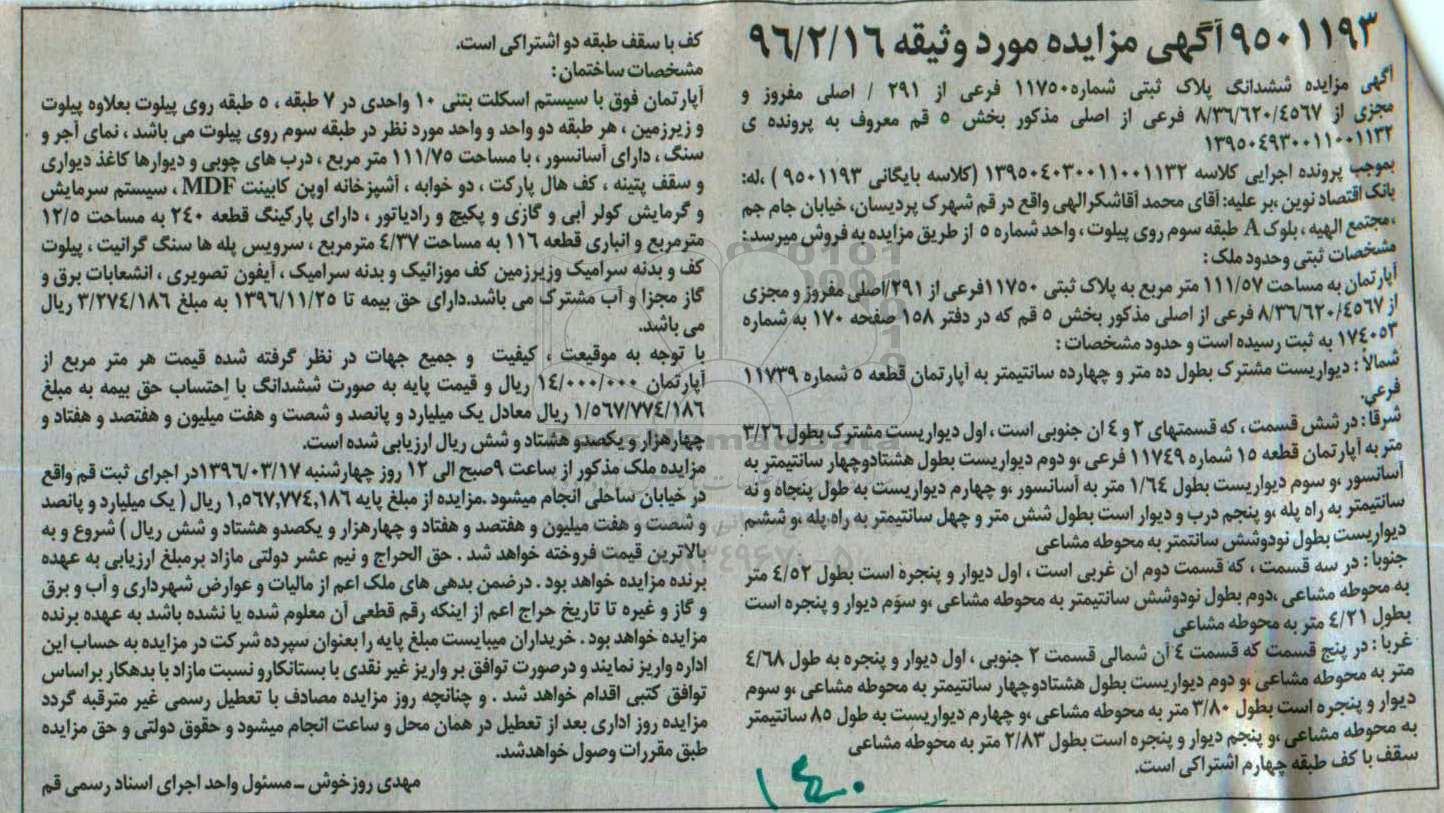 ۹۵۰۱۱۹۳ آگهی مزایده مورد وثیقه ۹۶/۲/۱۶
آگهی مزایده ششدانگ پلاک ثبتی شماره ۱۱۷۵۰ فرعی از ۲۹۱ / اصلی مفروز و
مجزی از ۸/۳۶/۶۲۰/۴۵۶۷ فرعی از اصلی مذکور بخش ۵ قم معروف به پرونده ی
۱۳۹۵۰۴۹۳۰۰۱۱۰۰۱۱۳۲
بموجب پرونده اجرایی کلاسه ۱۳۹۵۰۴۰۳۰۰۱۱۰۰۱۱۳۲ (کلاسه بایگانی ۹۵۰۱۱۹۳ ) ،له:
بانک اقتصاد نوین ،بر علیه: آقای محمد آقاشکرالهی واقع در قم شهرک پردیسان، خیابان جام جم
،مجتمع الهیه ، بلوک A طبقه سوم روی پیلوت ، واحد شماره ۵ از طریق مزایده به فروش میرسد:
مشخصات ثبتی وحدود ملک :
آپارتمان به مساحت ۱۱۱/۵۷ متر مربع به پلاک ثبتی ۱۱۷۵۰فرعی از ۲۹۱/اصلی مفروز و مجزی
از ۸/۳۶/۶۲۰/۴۵۶۷ فرعی از اصلی مذکور بخش ۵ قم که در دفتر ۱۵۸ صفحه ۱۷۰ به شماره
۱۷۴۰۵۳ به ثبت رسیده است و حدود مشخصات :
شمالاً : دیواریست مشترک بطول ده متر و چهارده سانتیمتر به آپارتمان قطعه ۵ شماره ۱۱۷۳۹
فرعی.
شرقا : در شش قسمت ، که قسمتهای ۲ و ۴ ان جنوبی است ، اول دیواریست مشترک بطول ۳/۲۶
متر به آپارتمان قطعه ۱۵ شماره ۱۱۷۴۹ فرعی ،و دوم دیواریست بطول هشتادوچهار سانتیمتر به
آسانسور ،و سوم دیواریست بطول ۱/۶۴ متر به آسانسور ،و چهارم دیواریست به طول پنجاه و نه
سانتیمتر به راه پله ،و پنجم درب و دیوار است بطول شش متر و چهل سانتیمتر به راه پله ،و ششم
دیواریست بطول نودوشش سانتمتر به محوطه مشاعی
جنوبا : در سه قسمت ، که قسمت دوم ان غربی است ، اول دیوار و پنجره است بطول ۴/۵۲ متر
به محوطه مشاعی ،دوم بطول نودوشش سانتیمتر به محوطه مشاعی ،و سوم دیوار و پنجره است
بطول ۴/۲۱ متر به محوطه مشاعی
غربا : در پنج قسمت که قسمت ۴ آن شمالی قسمت ۲ جنوبی ، اول دیوار و پنجره به طول ۴/۶۸
متر به محوطه مشاعی ،و دوم دیواریست بطول هشتادوچهار سانتیمتر به محوطه مشاعی ،و سوم
دیوار و پنجره است بطول ۳/۸۰ متر به محوطه مشاعی ،و چهارم دیواریست به طول ۸۵ سانتیمتر
به محوطه مشاعی ،و پنجم دیوار و پنجره است بطول ۲/۸۳ متر به محوطه مشاعی
سقف با کف طبقه چهارم اشتراکی است.
کف با سقف طبقه دو اشتراکی است.
مشخصات ساختمان :
آپارتمان فوق با سیستم اسکلت بتنی ۱۰ واحدی در ۷ طبقه ، ۵ طبقه روی پیلوت بعلاوه پیلوت
و زیرزمین ، هر طبقه دو واحد و واحد مورد نظر در طبقه سوم روی پیلوت می باشد ، نمای آجر و
سنگ ، دارای آسانسور ، با مساحت ۱۱۱/۷۵ متر مربع ، درب های چوبی و دیوارها کاغذ دیواری
و سقف پتینه ، کف هال پارکت ، دو خوابه ، آشپزخانه اوپن کابینت MDF ، سیستم سرمایش
و گرمایش کولر آبی و گازی و پکیچ و رادیاتور ، دارای پارکینگ قطعه ۲۴۰ به مساحت ۱۲/۵
مترمربع و انباری قطعه ۱۱۶ به مساحت ۴/۳۷ مترمربع ، سرویس پله ها سنگ گرانیت ، پیلوت
کف و بدنه سرامیک وزیرزمین کف موزائیک و بدنه سرامیک ، آیفون تصویری ، انشعابات برق و
گاز مجزا و آب مشترک می باشد.دارای حق بیمه تا ۱۳۹۶/۱۱/۲۵ به مبلغ ۳/۲۷۴/۱۸۶ ریال
می باشد.
با توجه به موقیعت ، کیفیت و جمیع جهات در نظر گرفته شده قیمت هر متر مربع از
آپارتمان ۱۴/۰۰۰/۰۰۰ ریال و قیمت پایه به صورت ششدانگ با اِحتساب حق بیمه به مبلغ
۱/۵۶۷/۷۷۴/۱۸۶ ریال معادل یک میلیارد و پانصد و شصت و هفت میلیون و هفتصد و هفتاد و
چهارهزار و یکصدو هشتاد و شش ریال ارزیابی شده است.
مزایده ملک مذکور از ساعت ۹صبح الی ۱۲ روز چهارشنبه ۱۳۹۶/۰۳/۱۷در اجرای ثبت قم واقع
در خیابان ساحلی انجام میشود .مزایده از مبلغ پایه ۱,۵۶۷,۷۷۴,۱۸۶ ریال ( یک میلیارد و پانصد
و شصت و هفت میلیون و هفتصد و هفتاد و چهارهزار و یکصدو هشتاد و شش ریال ) شروع و به
بالاترین قیمت فروخته خواهد شد . حق الحراج و نیم عشر دولتی مازاد برمبلغ ارزیابی به عهده
برنده مزایده خواهد بود . درضمن بدهی های ملک اعم از مالیات و عوارض شهرداری و آب و برق
و گاز و غیره تا تاریخ حراج اعم از اینکه رقم قطعی آن معلوم شده یا نشده باشد به عهده برنده
مزایده خواهد بود . خریداران میبایست مبلغ پایه را بعنوان سپرده شرکت در مزایده به حساب این
اداره واریز نمایند و درصورت توافق بر واریز غیر نقدی با بستانکارو نسبت مازاد با بدهکار براساس
توافق کتبی اقدام خواهد شد . و چنانچه روز مزایده مصادف با تعطیل رسمی غیر مترقبه گردد
مزایده روز اداری بعد از تعطیل در همان محل و ساعت انجام میشود و حقوق دولتی و حق مزایده
طبق مقررات وصول خواهدشد.
مهدی روزخوش _ مسئول واحد اجرای اسناد رسمی قم
۱۴۰